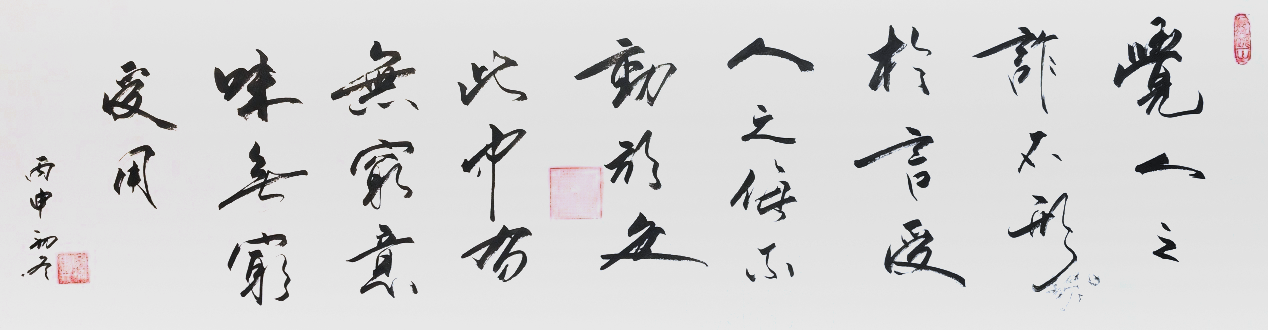 覺人之
詐不形
於言受
人之侮不
動於色
此中有
無窮意
味無窮
受用
丙申初冬